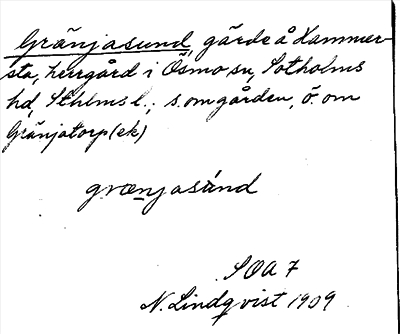 Gränjasund, gärde å Hammer-
sta, herrgård i Ösmo sn, Sotholms
hd, Sthlms l.; s. om gården, ö. om
Gränjatorp (ek)
grænjasúnd
SOA 7
N. Lindqvist 1909